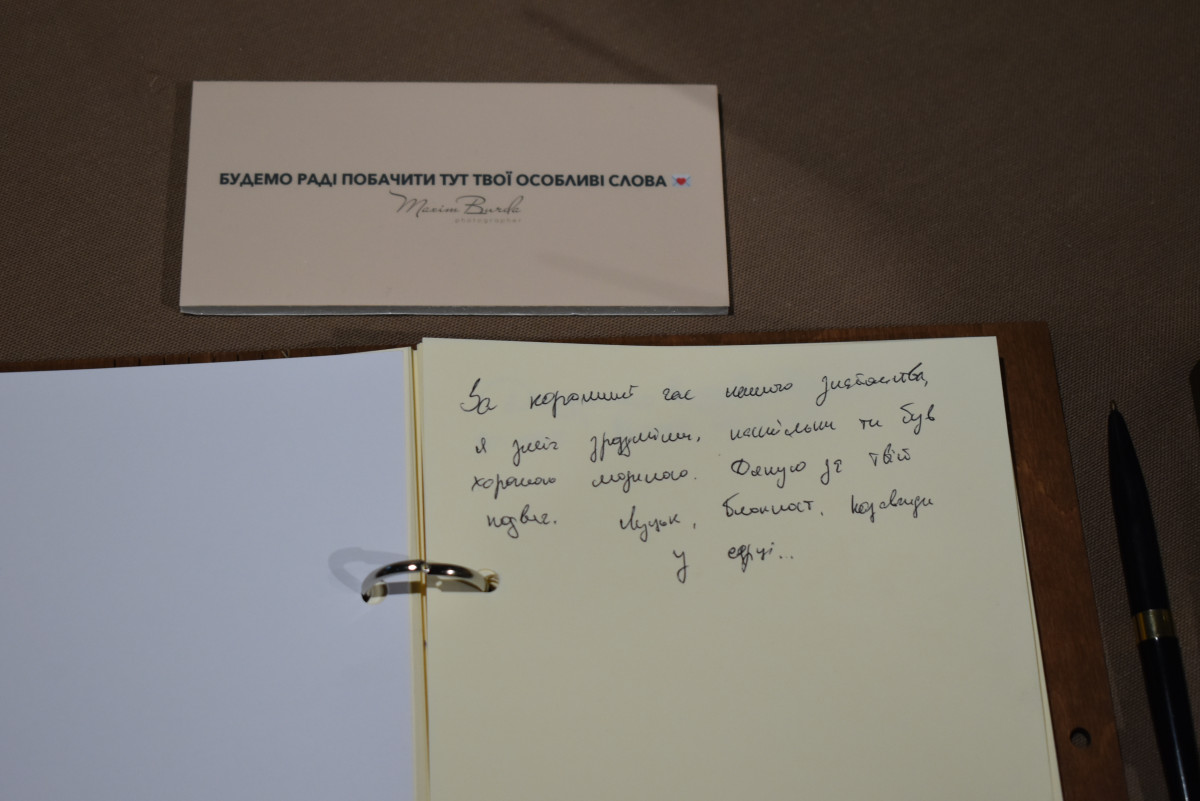 БУДЕМО РАДІ ПОБАЧИТИ ТУТ ТВОЇ ОСОБЛИВІ СЛОВА 💌
Maxim Burda
photographer
За короткий час нашого знайомства,
я зміг зрозуміти, наскільки ти був
хорошою людиною. Дякую за твій
подвиг. Луцьк, блокпост, назавжди
у серці...